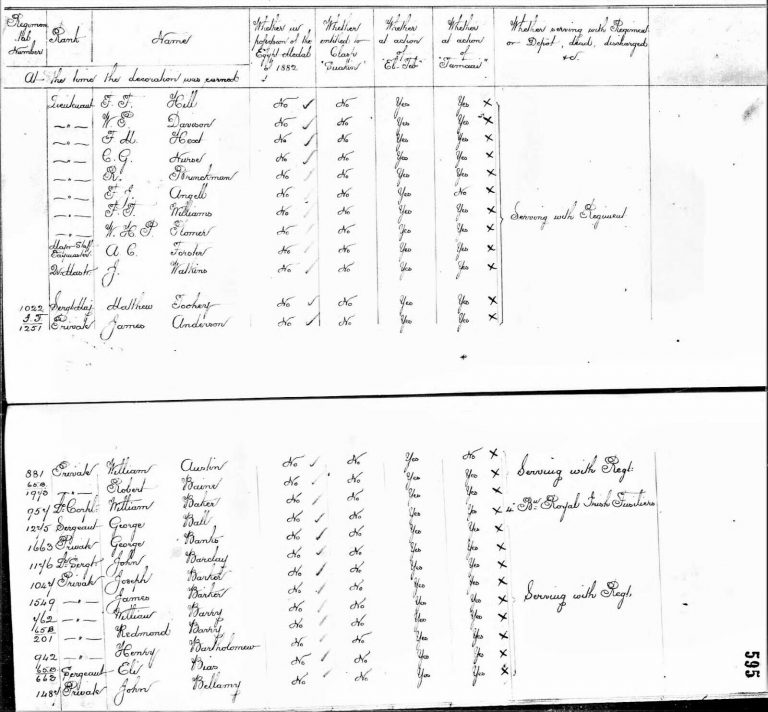 Regimental Numbers Rank Name Whether in possession of the Egypt Medal of 1882 Whether entitled to Clasp "Suakin" Whether at action of "El-Teb" Whether at action of "Temaai" Whether serving with Regiment or Depôt, dead, discharged &c.
At the time the decoration was earned
Lieutenant F. F. Hill No ✓ No Yes Yes ×
—"— W. S. Davison No ✓ No Yes Yes ×
—"— F. M. No ✓ No Yes Yes ×
—"— C. G. Nurse No ✓ No Yes Yes ×
—"— R. Brinckman No No Yes Yes ×
—"— F. Angell No No Yes No ×
—"— F. F. Williams No No Yes Yes × Serving with Regiment
—"— W. H. P. No No Yes Yes ×
Paymaster A. C. Forster No ✓ No Yes Yes ×
Qr. Mastr. J. Watkins No ✓ No Yes Yes ×
1022 Sergt Maj Matthew No ✓ No Yes Yes ×
1251 Private James Anderson No ✓ No Yes Yes ×
881 Private William Austin No ✓ No Yes No × Serving with Regt.
1973 —"— Robert No No Yes Yes ×
954 Ce Corpl William Baker No No Yes Yes × Bn Royal Irish Fusiliers
1245 Sergeant George Ball No ✓ No Yes Yes ×
1663 Private George Banks No ✓ No Yes Yes ×
1176 Ce Sergt John Barclay No No Yes Yes ×
1047 Private Joseph Barker No No Yes Yes ×
1549 —"— James Barker No No Yes Yes × Serving with Regt.
462 —"— William Barry No No Yes Yes ×
201 —"— Redmond Barry No No Yes Yes ×
942 —"— Henry Bartholomew No No Yes Yes ×
663 Sergeant Eli Bias No No Yes Yes ×
1484 Private John Bellamy No No Yes Yes ×
595